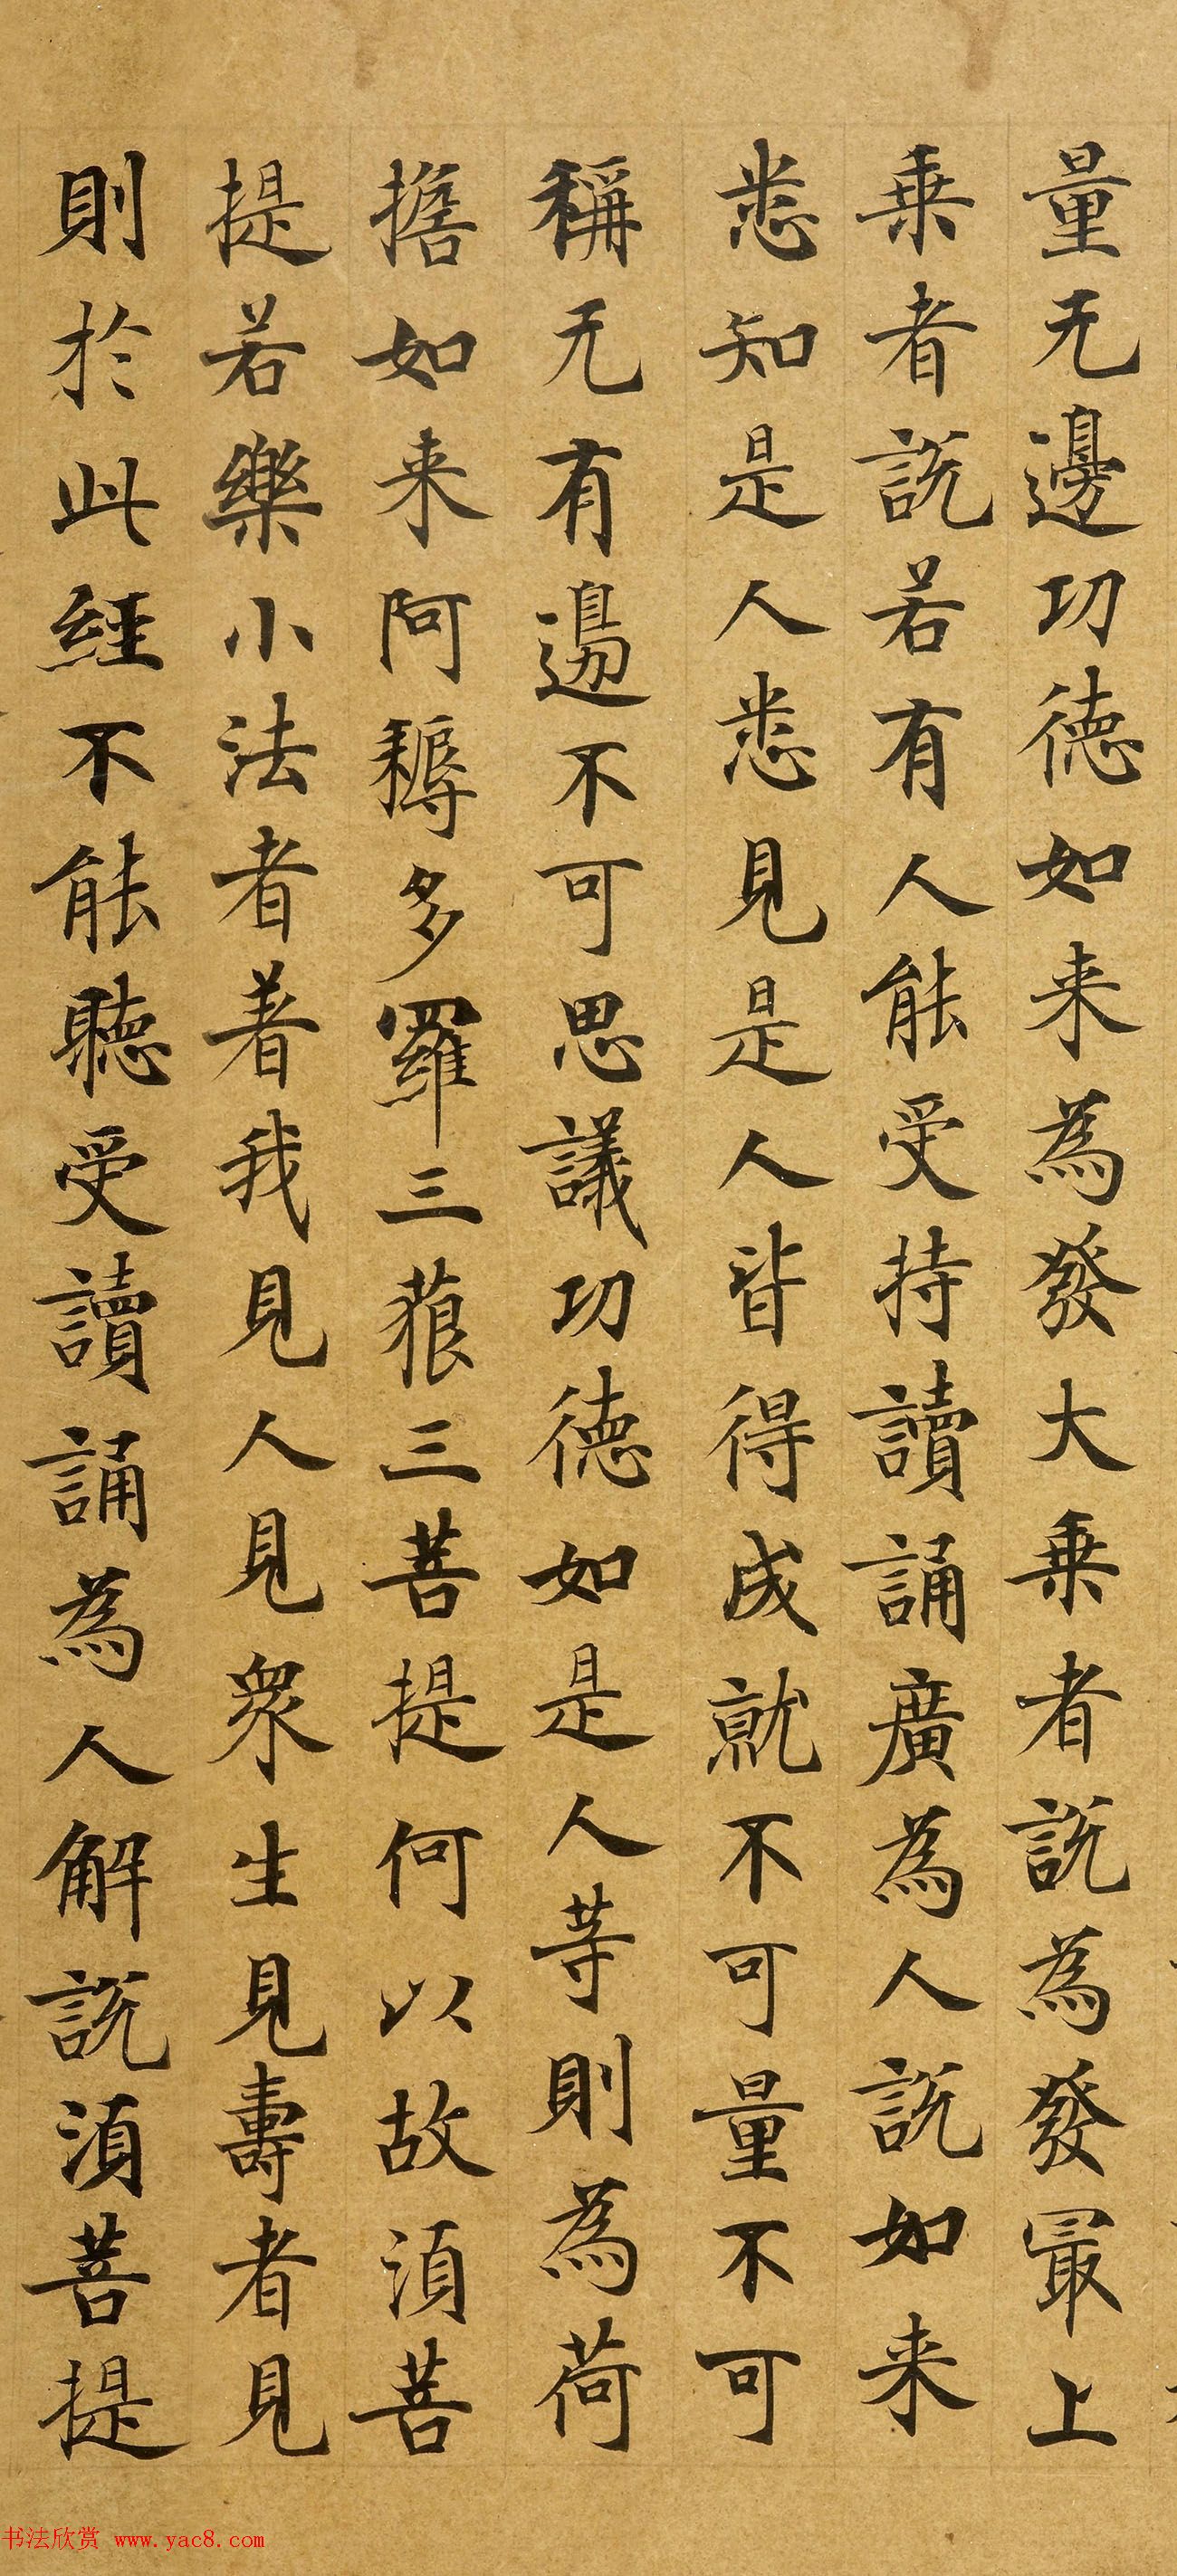 量无邊功德如来為發大乗者說為發冣上
乗者說若有人能受持讀誦廣為人說如来
悉知是人悉見是人皆得成就不可量不可
稱无有邊不可思議功德如是人等則為荷
擔如来阿耨多羅三藐三菩提何以故湏菩
提若樂小法者著我見人見衆生見壽者見
則於此經不能聽受讀誦為人解說湏菩提
书法欣赏 www.yac8.com